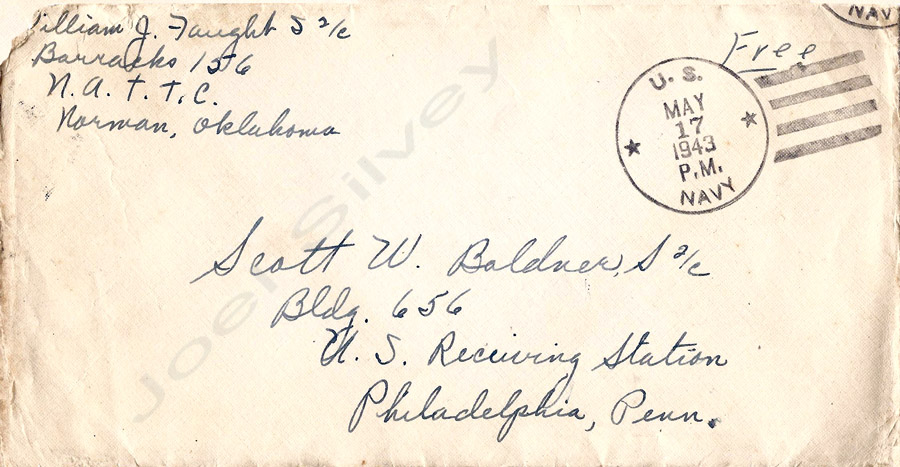 William J. Faught S 2/c
Barracks 156
N.A.T.T.C.
Norman, Oklahoma
Free
U.S.
MAY
17
1943
P.M.
NAVY
NAVY
Scott W. Boldner, S 2/c
Bldg. 656
U.S. Receiving Station
Philadelphia, Penn.
Joel Silvey